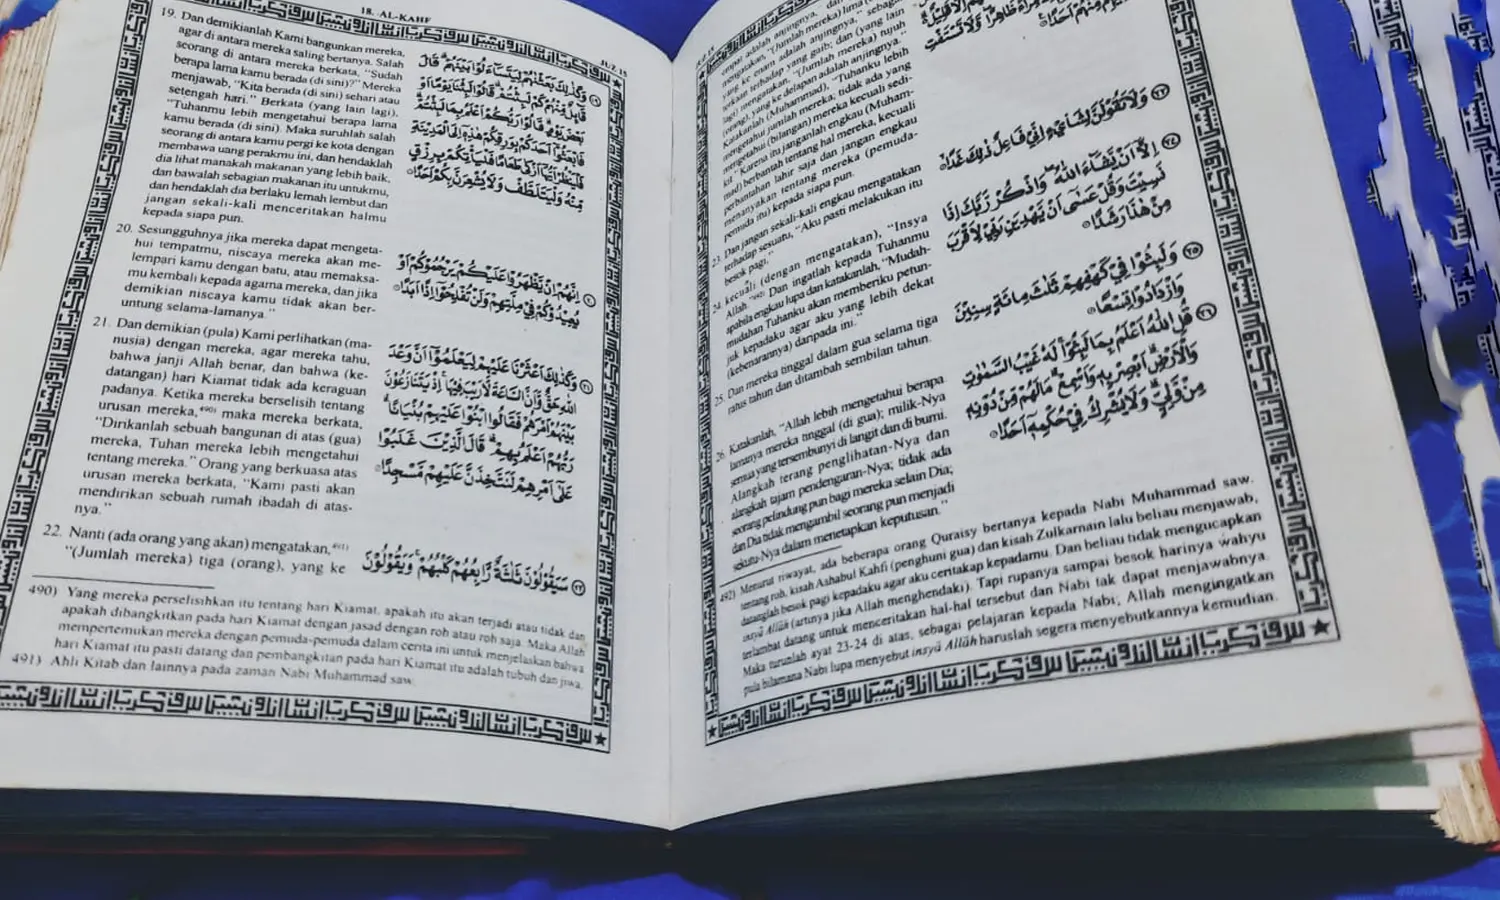 18. AL-KAHF
JUZ 15
19. Dan demikianlah Kami bangunkan mereka,
agar di antara mereka saling bertanya. Salah
seorang di antara mereka berkata, "Sudah
berapa lama kamu berada (di sini)?" Mereka
menjawab, "Kita berada (di sini) sehari atau
setengah hari." Berkata (yang lain lagi),
"Tuhanmu lebih mengetahui berapa lama
kamu berada (di sini). Maka suruhlah salah
seorang di antara kamu pergi ke kota dengan
membawa uang perakmu ini, dan hendaklah
dia lihat manakah makanan yang lebih baik,
dan bawalah sebagian makanan itu untukmu,
dan hendaklah dia berlaku lemah lembut dan
jangan sekali-kali menceritakan halmu
kepada siapa pun.
وَكَذٰلِكَ بَعَثْنٰهُمْ لِيَتَسَاۤءَلُوْا بَيْنَهُمْۗ قَالَ
قَاۤىِٕلٌ مِّنْهُمْ كَمْ لَبِثْتُمْۗ قَالُوْا لَبِثْنَا يَوْمًا اَوْ
بَعْضَ يَوْمٍۗ قَالُوْا رَبُّكُمْ اَعْلَمُ بِمَا لَبِثْتُمْۗ
فَابْعَثُوْٓا اَحَدَكُمْ بِوَرِقِكُمْ هٰذِهٖٓ اِلَى الْمَدِيْنَةِ
فَلْيَنْظُرْ اَيُّهَآ اَزْكٰى طَعَامًا فَلْيَأْتِكُمْ بِرِزْقٍ
مِّنْهُ وَلْيَتَلَطَّفْ وَلَا يُشْعِرَنَّ بِكُمْ اَحَدًا ۝١٩
20. Sesungguhnya jika mereka dapat mengeta-
hui tempatmu, niscaya mereka akan me-
lempari kamu dengan batu, atau memaksa-
mu kembali kepada agama mereka, dan jika
demikian niscaya kamu tidak akan ber-
untung selama-lamanya."
اِنَّهُمْ اِنْ يَّظْهَرُوْا عَلَيْكُمْ يَرْجُمُوْكُمْ اَوْ
يُعِيْدُوْكُمْ فِيْ مِلَّتِهِمْ وَلَنْ تُفْلِحُوْٓا اِذًا اَبَدًا ۝٢٠
21. Dan demikian (pula) Kami perlihatkan (ma-
nusia) dengan mereka, agar mereka tahu,
bahwa janji Allah benar, dan bahwa (ke-
datangan) hari Kiamat tidak ada keraguan
padanya. Ketika mereka berselisih tentang
urusan mereka,⁴⁹⁰⁾ maka mereka berkata,
"Dirikanlah sebuah bangunan di atas (gua)
mereka, Tuhan mereka lebih mengetahui
tentang mereka." Orang yang berkuasa atas
urusan mereka berkata, "Kami pasti akan
mendirikan sebuah rumah ibadah di atas-
nya."
وَكَذٰلِكَ اَعْثَرْنَا عَلَيْهِمْ لِيَعْلَمُوْٓا اَنَّ وَعْدَ
اللّٰهِ حَقٌّ وَّاَنَّ السَّاعَةَ لَا رَيْبَ فِيْهَاۚ اِذْ يَتَنَازَعُوْنَ
بَيْنَهُمْ اَمْرَهُمْ فَقَالُوا ابْنُوْا عَلَيْهِمْ بُنْيَانًاۗ
رَبُّهُمْ اَعْلَمُ بِهِمْۗ قَالَ الَّذِيْنَ غَلَبُوْا
عَلٰٓى اَمْرِهِمْ لَنَتَّخِذَنَّ عَلَيْهِمْ مَّسْجِدًا ۝٢١
22. Nanti (ada orang yang akan) mengatakan,⁴⁹¹⁾
"(Jumlah mereka) tiga (orang), yang ke
سَيَقُوْلُوْنَ ثَلٰثَةٌ رَّابِعُهُمْ كَلْبُهُمْۚ وَيَقُوْلُوْنَ ۝٢٢
490) Yang mereka perselisihkan itu tentang hari Kiamat, apakah itu akan terjadi atau tidak dan
apakah dibangkitkan pada hari Kiamat dengan jasad dengan roh atau roh saja. Maka Allah
mempertemukan mereka dengan pemuda-pemuda dalam cerita ini untuk menjelaskan bahwa
hari Kiamat itu pasti datang dan pembangkitan pada hari Kiamat itu adalah tubuh dan jiwa.
491) Ahli Kitab dan lainnya pada zaman Nabi Muhammad saw.
empat adalah anjingnya, dan
mengatakan, "(Jumlah mereka) lima (
yang ke enam adalah anjingnya," sebagai
terkaan terhadap yang gaib; dan (yang lain
lagi) mengatakan, "(Jumlah mereka) tujuh
(orang), yang ke delapan adalah anjingnya."
Katakanlah (Muhammad), "Tuhanku lebih
mengetahui jumlah mereka; tidak ada yang
mengetahui (bilangan) mereka kecuali sedi-
kit." Karena itu janganlah engkau (Muham-
mad) berbantah tentang hal mereka, kecuali
perbantahan lahir saja dan jangan engkau
menanyakan tentang mereka (pemuda-
pemuda itu) kepada siapa pun.
23. Dan jangan sekali-kali engkau mengatakan
terhadap sesuatu, "Aku pasti melakukan itu
besok pagi,"
وَلَا تَقُوْلَنَّ لِشَا۟يْءٍ اِنِّيْ فَاعِلٌ ذٰلِكَ غَدًا ۝٢٣
24. kecuali (dengan mengatakan), "Insya
Allah."⁴⁹²⁾ Dan ingatlah kepada Tuhanmu
apabila engkau lupa dan katakanlah, "Mudah-
mudahan Tuhanku akan memberiku petun-
juk kepadaku agar aku yang lebih dekat
(kebenarannya) daripada ini."
اِلَّآ اَنْ يَّشَاۤءَ اللّٰهُ وَاذْكُرْ رَّبَّكَ اِذَا
نَسِيْتَ وَقُلْ عَسٰٓى اَنْ يَّهْدِيَنِ رَبِّيْ لِاَقْرَبَ
مِنْ هٰذَا رَشَدًا ۝٢٤
25. Dan mereka tinggal dalam gua selama tiga
ratus tahun dan ditambah sembilan tahun.
وَلَبِثُوْا فِيْ كَهْفِهِمْ ثَلٰثَ مِائَةٍ سِنِيْنَ
وَازْدَادُوْا تِسْعًا ۝٢٥
26. Katakanlah, "Allah lebih mengetahui berapa
lamanya mereka tinggal (di gua); milik-Nya
semua yang tersembunyi di langit dan di bumi.
Alangkah terang penglihatan-Nya dan
alangkah tajam pendengaran-Nya; tidak ada
seorang pelindung pun bagi mereka selain Dia;
dan Dia tidak mengambil seorang pun menjadi
sekutu-Nya dalam menetapkan keputusan."
قُلِ اللّٰهُ اَعْلَمُ بِمَا لَبِثُوْاۚ لَهٗ غَيْبُ السَّمٰوٰتِ
وَالْاَرْضِۗ اَبْصِرْ بِهٖ وَاَسْمِعْۗ مَا لَهُمْ مِّنْ دُوْنِهٖ
مِنْ وَّلِيٍّۗ وَلَا يُشْرِكُ فِيْ حُكْمِهٖٓ اَحَدًا ۝٢٦
492) Menurut riwayat, ada beberapa orang Quraisy bertanya kepada Nabi Muhammad saw.
tentang roh, kisah Ashabul Kahfi (penghuni gua) dan kisah Zulkarnain lalu beliau menjawab,
datanglah besok pagi kepadaku agar aku ceritakan kepadamu. Dan beliau tidak mengucapkan
insyā Allāh (artinya jika Allah menghendaki). Tapi rupanya sampai besok harinya wahyu
terlambat datang untuk menceritakan hal-hal tersebut dan Nabi tak dapat menjawabnya.
Maka turunlah ayat 23-24 di atas, sebagai pelajaran kepada Nabi; Allah mengingatkan
pula bilamana Nabi lupa menyebut insyā Allāh haruslah segera menyebutkannya kemudian.